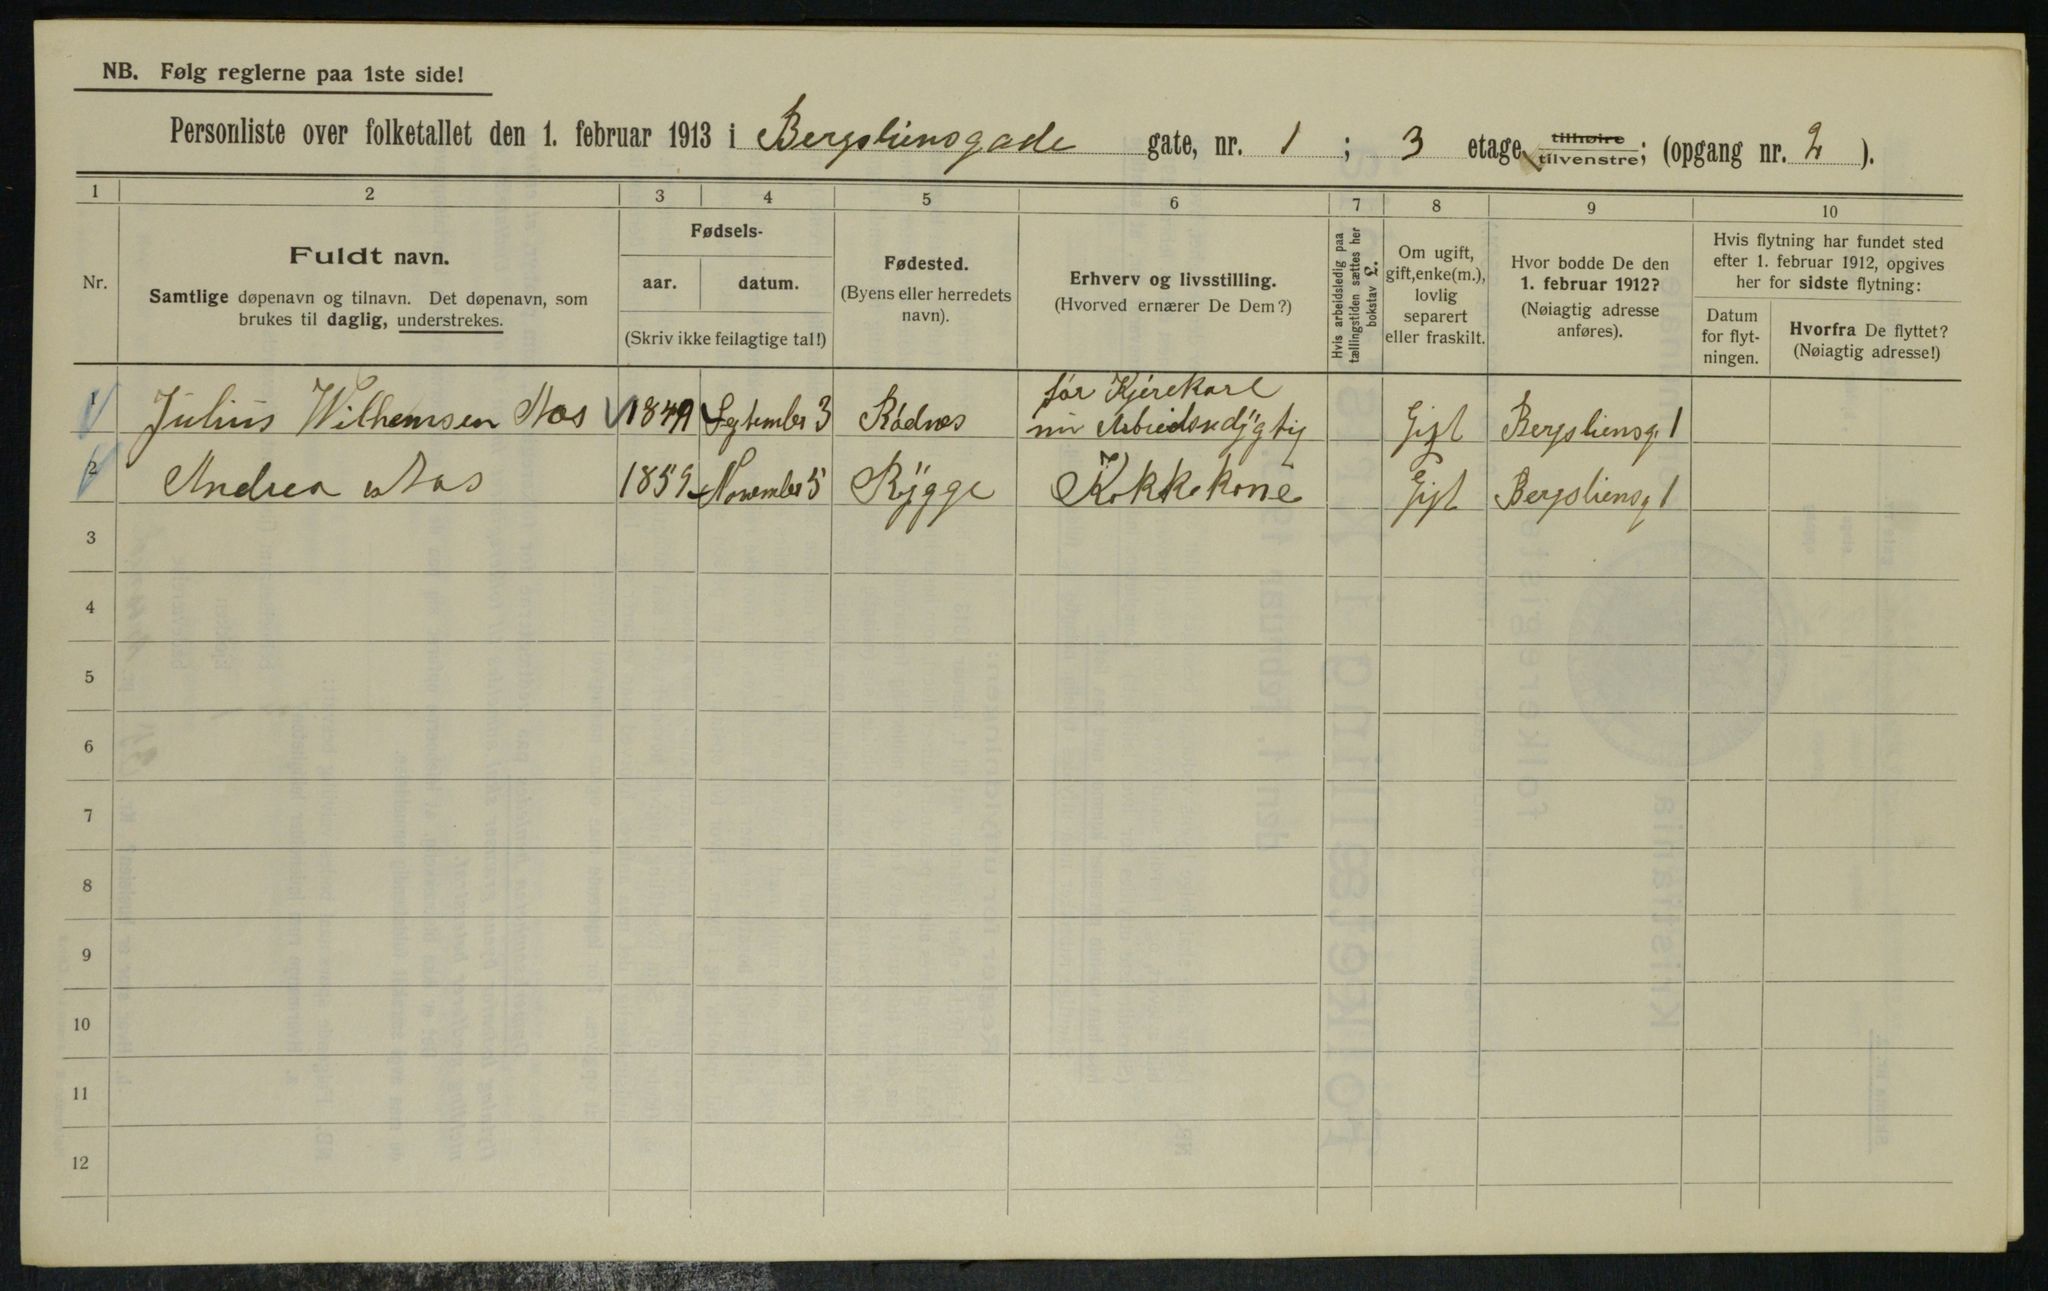 NB. Følg reglerne paa 1ste side!
Personliste over folketallet den 1. februar 1913 i Bergsliensgade gate, nr. 1 ; 3 etage tilhøire tilvenstre; (opgang nr. 2 ).
1 2 3 4 5 6 7 8 9 10
Nr.
Fuldt navn.
Samtlige døpenavn og tilnavn. Det døpenavn, som
brukes til daglig, understrekes.
Fødsels-
aar. datum.
(Skriv ikke feilagtige tal!)
Fødested.
(Byens eller herredets
navn).
Erhverv og livsstilling.
(Hvorved ernærer De Dem?)
Hvis arbeidsledig paa
tællingstiden sættes her
bokstav L.
Om ugift,
gift, enke(m.),
lovlig
separert
eller fraskilt.
Hvor bodde De den
1. februar 1912?
(Nøiagtig adresse
anføres).
Hvis flytning har fundet sted
efter 1. februar 1912, opgives
her for sidste flytning:
Datum
for flyt-
ningen.
Hvorfra De flyttet?
(Nøiagtig adresse!)
før Kjørekarl
1 Julius Wilhemsen Aas 1849 September 3 Rødnes nu Arbeidsudygtig Gift Bergsliensg. 1
2 Andrea Aas 1859 November 5 Rygge Kokkekone Gift Bergsliensg 1
3
4
5
6
7
8
9
10
11
12